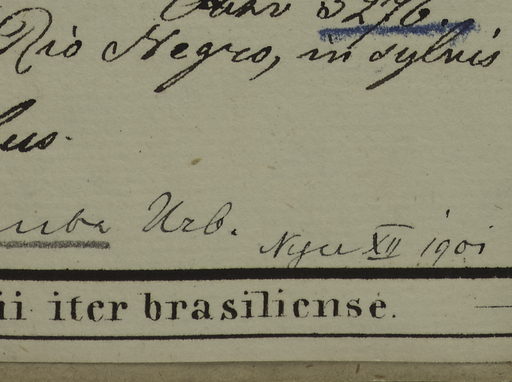 3276.
Rio Negro, in sylvis
Urb.
XII 1901
ii iter brasiliense.